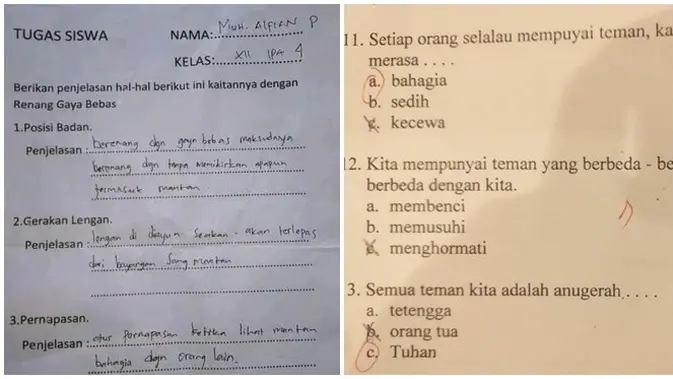 TUGAS SISWA
NAMA: MUH. ALFIAN P
KELAS: XII IPA 4
Berikan penjelasan hal-hal berikut ini kaitannya dengan
Renang Gaya Bebas
1.Posisi Badan.
Penjelasan : berenang dgn gaya bebas maksudnya
berenang dgn tanpa memikirkan apapun
termasuk mantan
2.Gerakan Lengan.
Penjelasan : lengan di dayun seakan-akan terlepas
dari bayangan sang mantan
3.Pernapasan.
Penjelasan : atur pernapasan ketika lihat mantan
bahagia dgn orang lain.
11. Setiap orang selalau mempuyai teman, ka
merasa . . . .
a. bahagia
b. sedih
c. kecewa
12. Kita mempunyai teman yang berbeda - be
berbeda dengan kita.
a. membenci
b. memusuhi
c. menghormati
3. Semua teman kita adalah anugerah . . . .
a. tetengga
b. orang tua
c. Tuhan